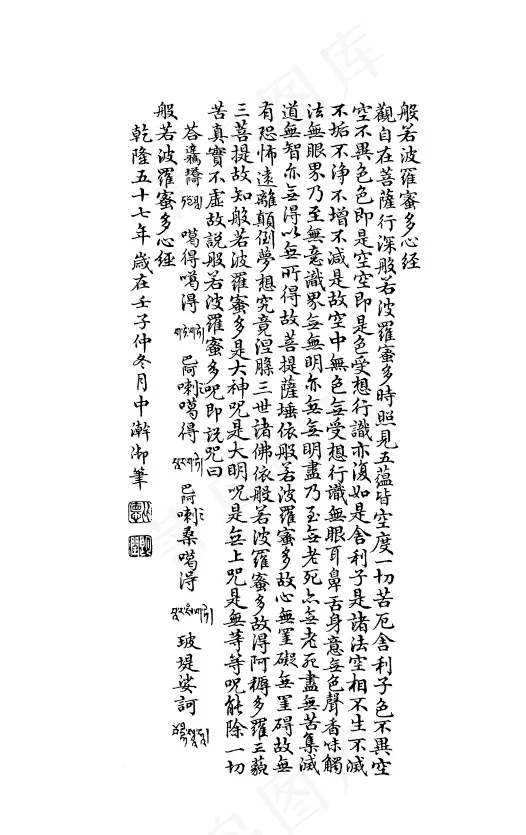 般若波羅蜜多心经
觀自在菩薩行深般若波羅蜜多時照見五蕴皆空度一切苦厄舍利子色不異空
空不異色色即是空空即是色受想行識亦復如是舍利子是諸法空相不生不滅
不垢不浄不增不减是故空中無色無受想行識無眼耳鼻舌身意無色聲香味觸
法無眼界乃至無意識界無無明亦無無明盡乃至無老死亦無老死盡無苦集滅
道無智亦無得以無所得故菩提薩埵依般若波羅蜜多故心無罣礙無罣碍故無
有恐怖遠離顛倒夢想究竟涅槃三世諸佛依般若波羅蜜多故得阿耨多羅三藐
三菩提故知般若波羅蜜多是大神咒是大明咒是無上咒是無等等呪能除一切
苦真實不虚故說般若波羅蜜多咒即説咒曰
荅 噶得噶得 巴阿喇噶得 巴阿喇桑噶得 玻堤娑訶
般若波羅蜜多心经
乾隆五十七年歲在壬子仲冬月中澣御筆